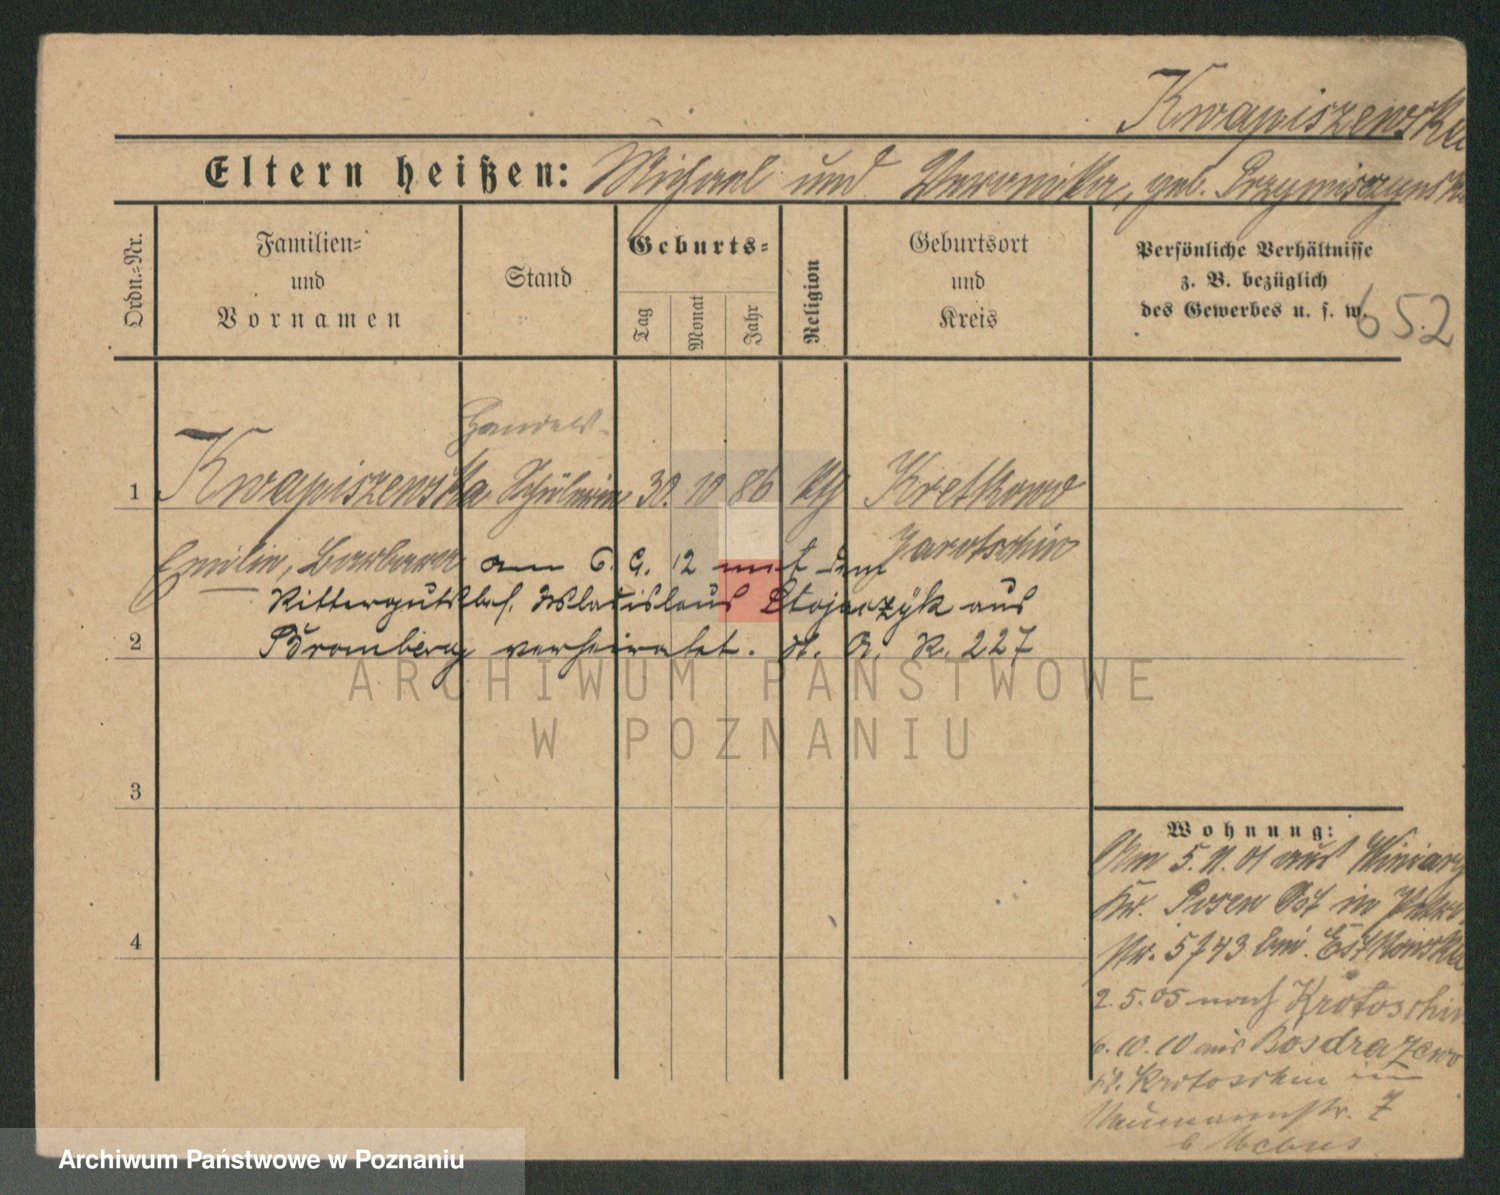 Kwapiszewska
Eltern heißen: Michael und Veronika, geb. Przymiszyńska
Ordn.=Nr.
Familien=
und
Vornamen
Stand
Geburts=
Tag
Monat
Jahr
Religion
Geburtsort
und
Kreis
Persönliche Verhältnisse
z. B. bezüglich
des Gewerbes u. s. w.
652
Handels-
1 Kwapiszewska Schülerin 30. 10 86 Kretkowo
Emilie, Barbara Jarotschin
am 6. 9. 12 mit dem
Rittergutsbes. Wladislaus Stojaczyk aus
2 Bromberg verheiratet. St. A. R. 227
3
4
Wohnung:
Am 5. 11. 01 aus Winiary
Kr. Posen Ost in
Nr. 5743 bei Estkowska
2. 5. 05 nach Krotoschin
6. 10. 10 aus Bosdrazewo
Kr. Krotoschin in
Naumannstr. 7
b Mebus
ARCHIWUM PAŃSTWOWE
W POZNANIU
Archiwum Państwowe w Poznaniu